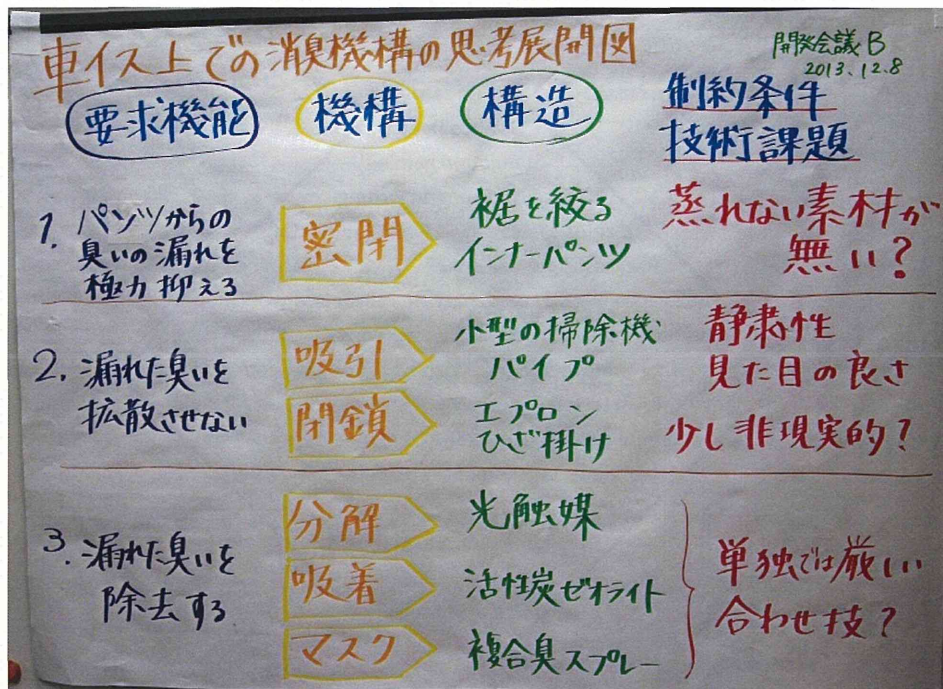 車イス上での消臭機構の思考展開図
開発会議B
2013.12.8
要求機能
機構
構造
制約条件
技術課題
1. パンツからの
臭いの漏れを
極力抑える
密閉
裾を絞る
インナーパンツ
蒸れない素材が
無い?
2. 漏れた臭いを
拡散させない
吸引
小型の掃除機
パイプ
静粛性
見た目の良さ
閉鎖
エプロン
ひざ掛け
少し非現実的?
3. 漏れた臭いを
除去する
分解
光触媒
吸着
活性炭ゼオライト
マスク
複合臭スプレー
単独では厳しい
合わせ技?